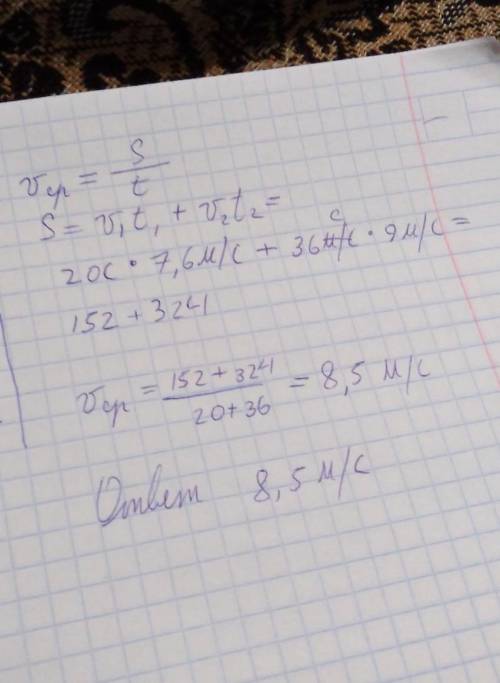 vср = S/t
S = v₁t₁ + v₂t₂ =
20с · 7,6м/с + 36с · 9м/с =
152 + 324
vср = (152 + 324)/(20+36) = 8,5 м/с
Ответ 8,5 м/с